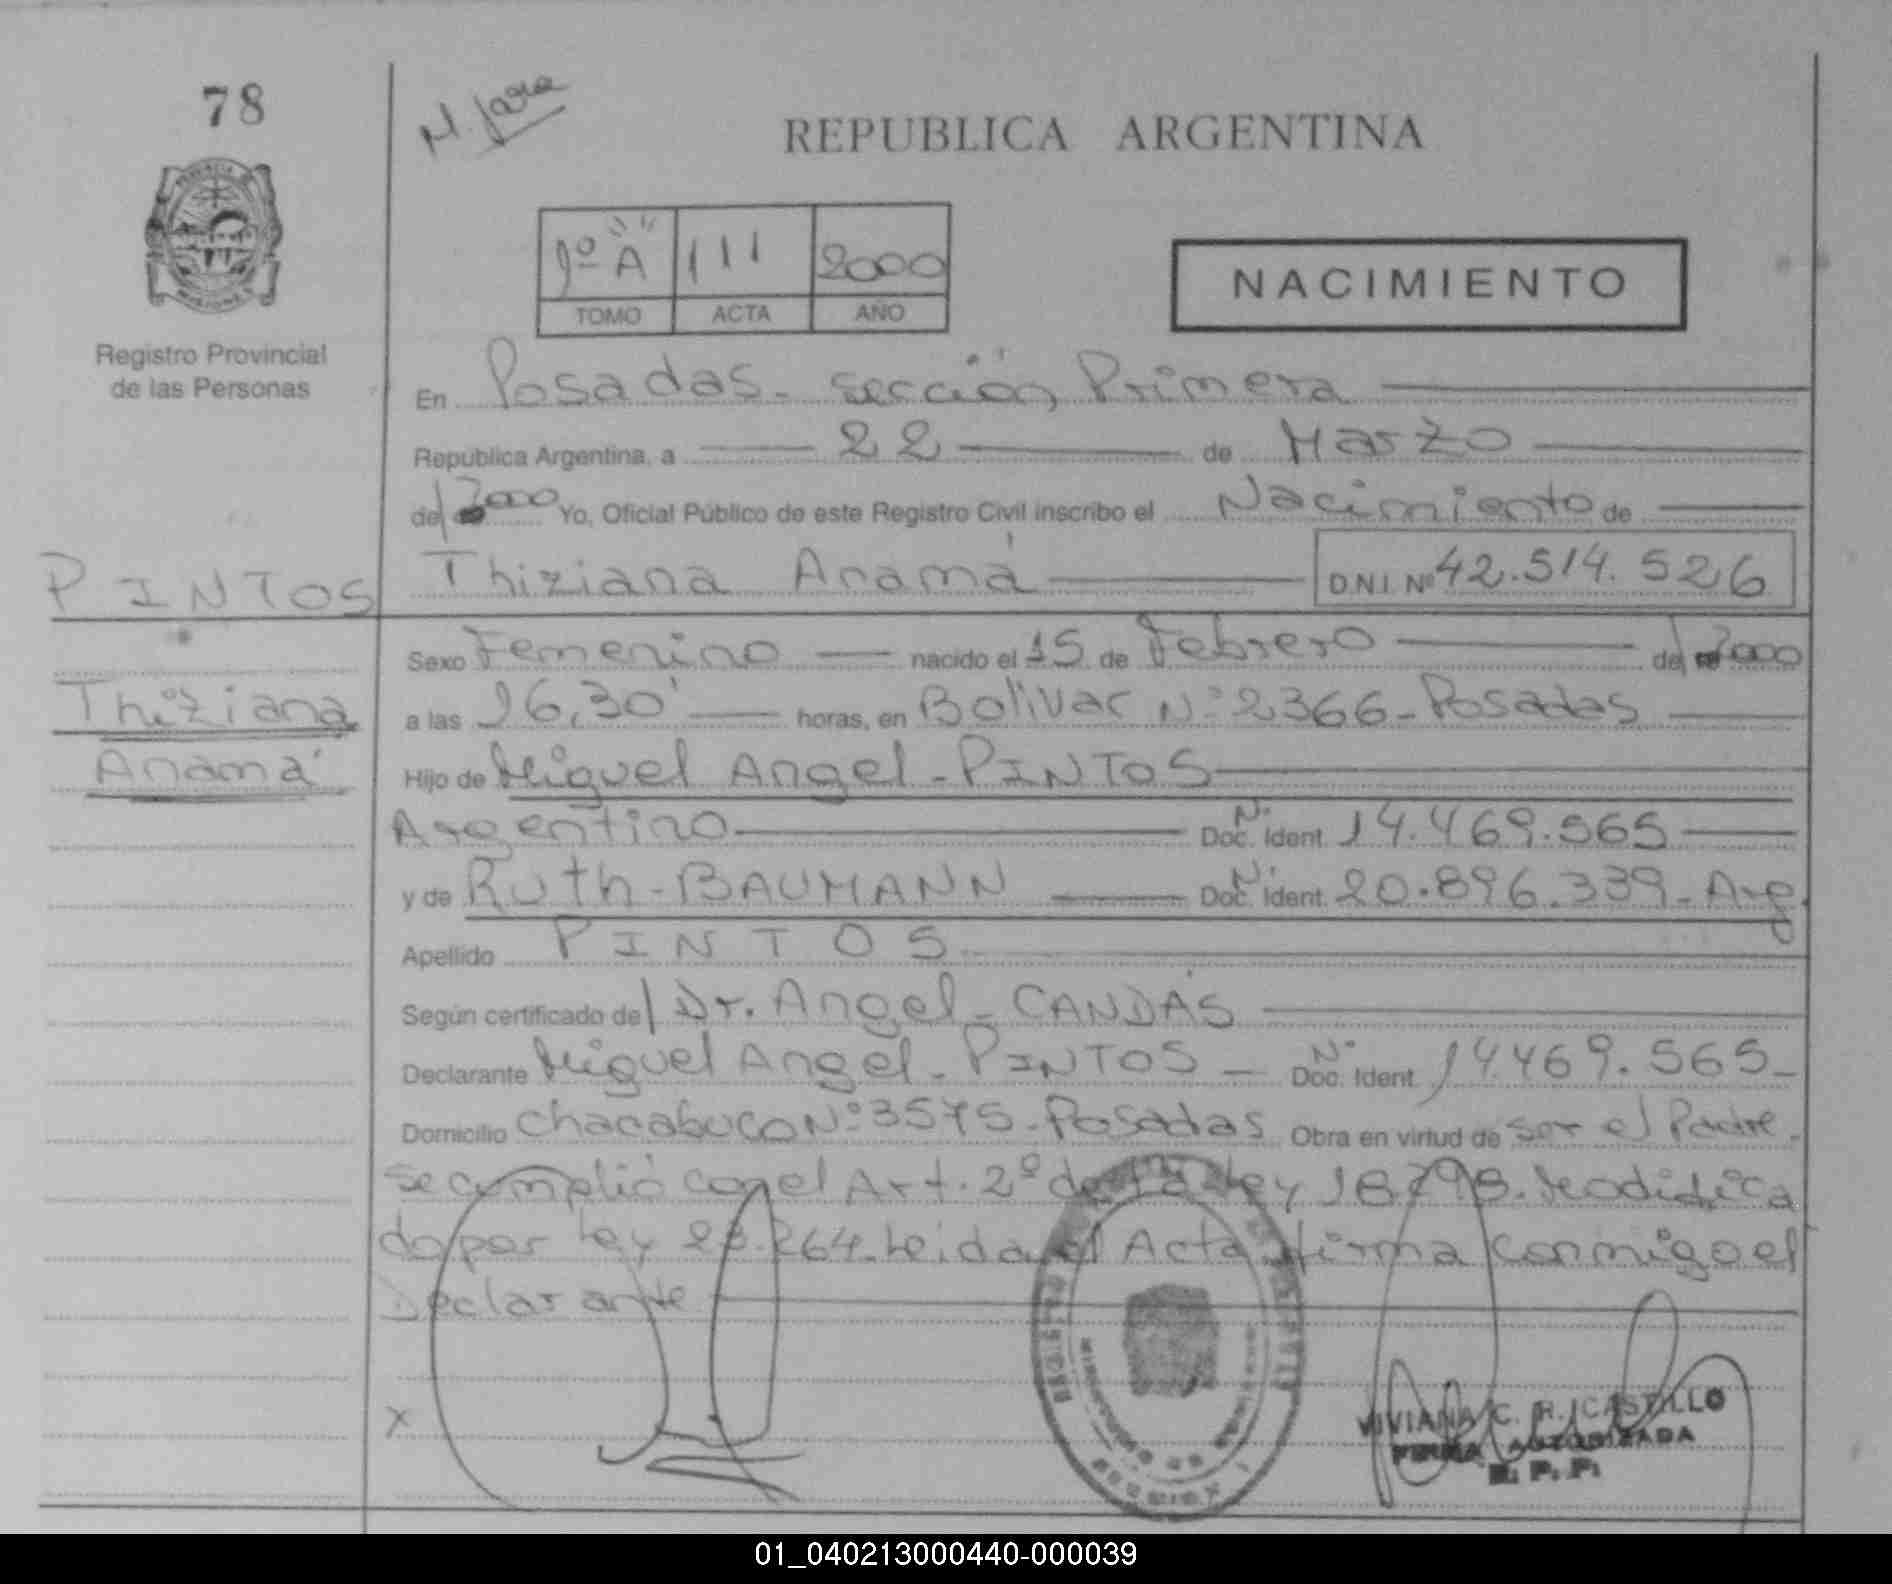 78
N. Jara
REPUBLICA ARGENTINA
1º "A" 111 2000
TOMO ACTA AÑO
NACIMIENTO
Registro Provincial
de las Personas
En Posadas - sección Primera
República Argentina, a 22 de Marzo
de 2000 Yo, Oficial Público de este Registro Civil inscribo el Nacimiento de
PINTOS
Thiziana Anamá D.N.I. Nº 42.514.526
Sexo Femenino nacido el 15 de Febrero de 2000
Thiziana
a las 16,30' horas, en Bolivar Nº 2366 - Posadas
Anamá
Hijo de Miguel Angel - PINTOS
Argentino Nº Doc. Ident. 14.469.565
y de Ruth - BAUMANN Nº Doc. Ident. 20.896.339 - Arg.
Apellido PINTOS
Según certificado de Dr. Angel - CANDÁS
Declarante Miguel Angel - PINTOS - Nº Doc. Ident. 14469.565 -
Domicilio Chacabuco Nº 3575 - Posadas Obra en virtud de ser el Padre.
se cumplió con el Art. 2º de la Ley 18.298. Modifica
do por Ley 23.264. Leida el Acta firma conmigo el
Declarante
X
VIVIANA C. R. CASTILLO
FIRMA AUTORIZADA
R. P. P.
01_040213000440-000039